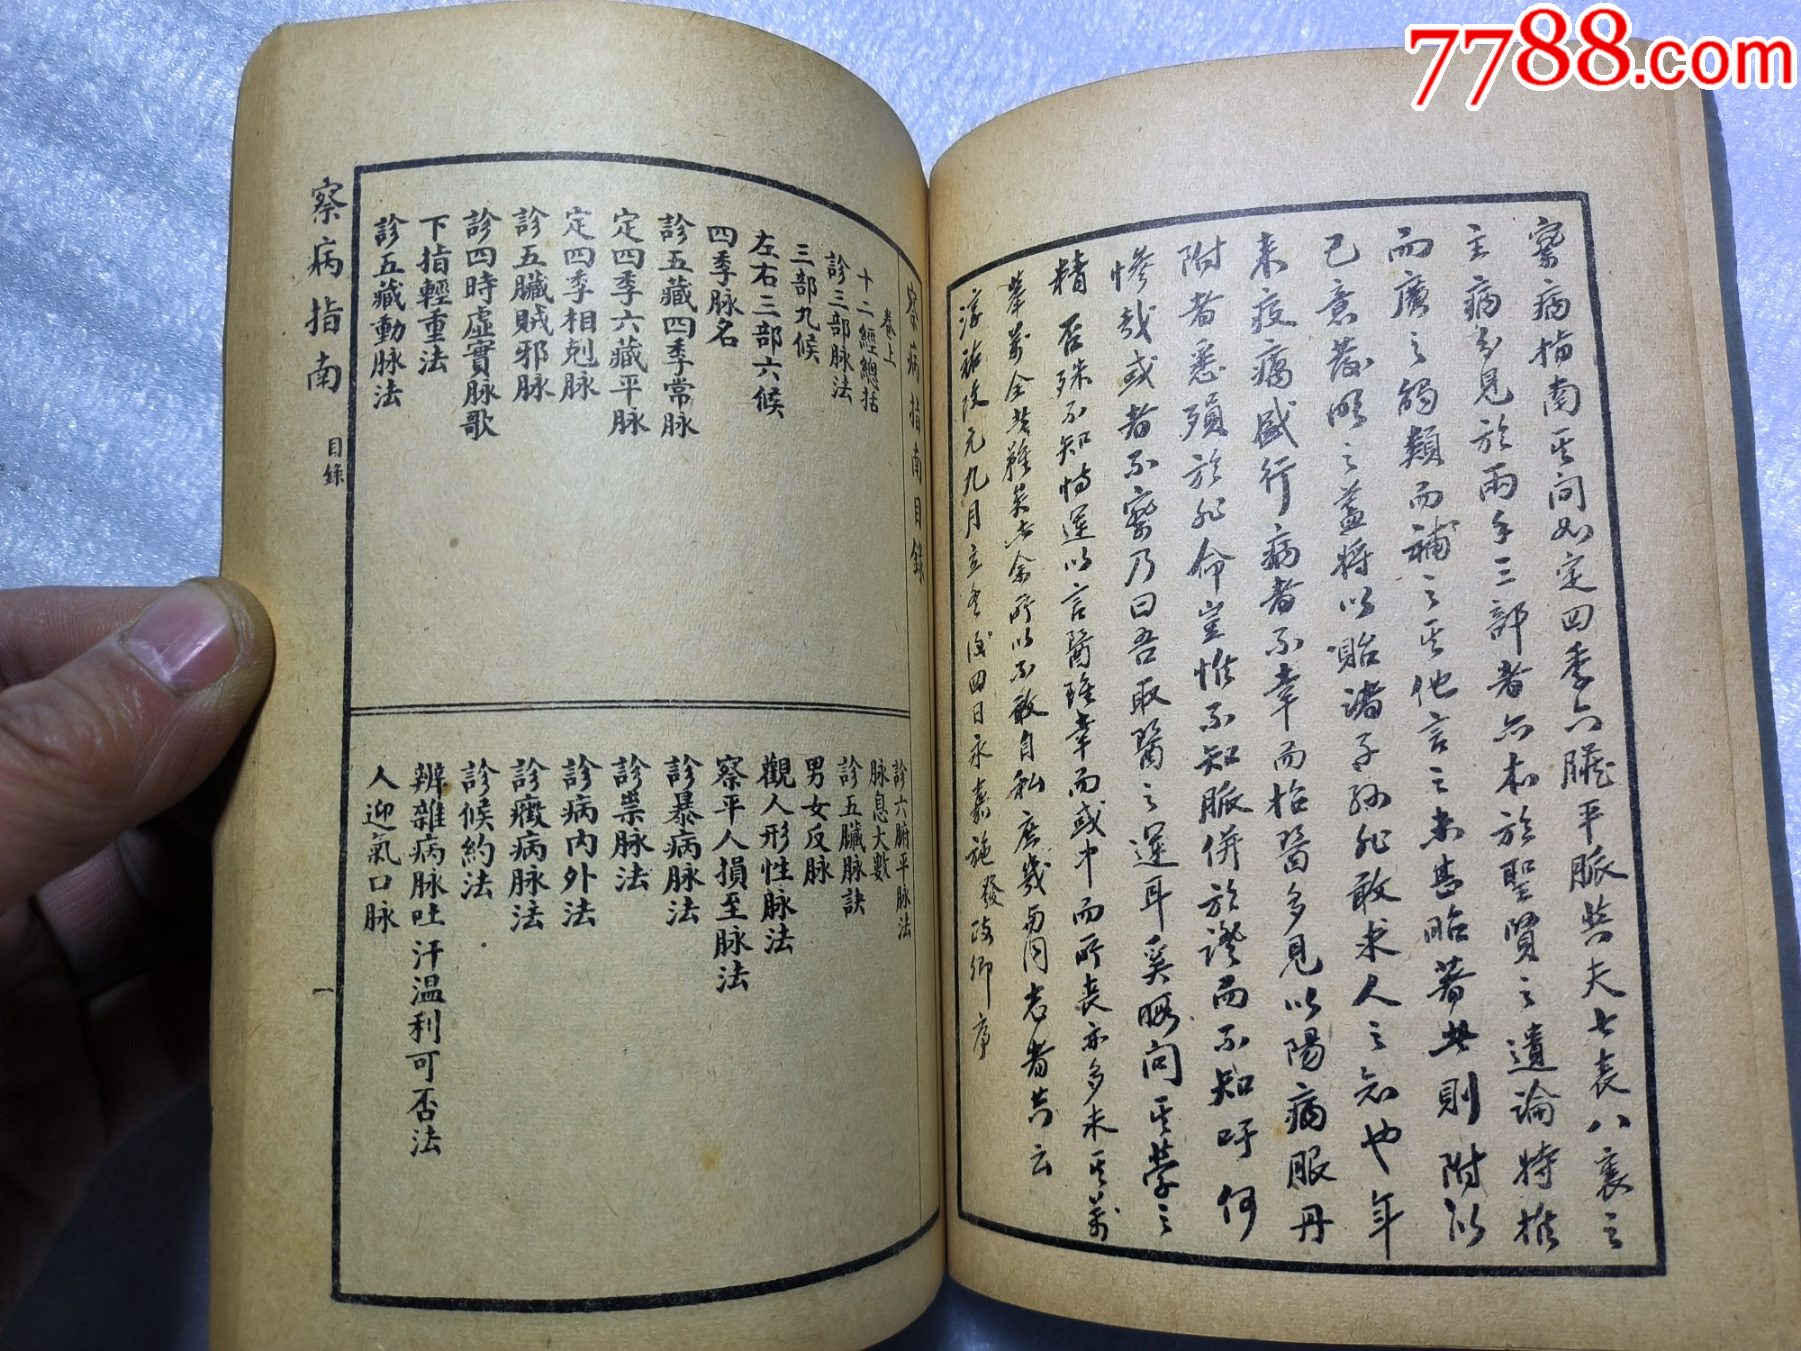 7788.com
察病指南其間如定四季六臟平脈與夫七表八裏之
主病多見於兩手三部者亦本於聖賢之遺論特推
而廣之觸類而補之其他言之未甚昭著此則附以
己意發明之蓋將以貽諸子孫非敢求人之知也年
来疫癘盛行病者不幸而招醫多見以陽病服丹
附者悉殞於非命豈惟不知脈併於證而不知吁何
慘哉或者不察乃曰吾取醫之運耳奚暇問其學之
精否殊不知恃運以言醫雖幸而或中而所喪亦多未其萬
舉萬全甚難矣此余所以不敢自私庶幾與同志者共云
淳祐改元九月立冬後四日永嘉施發政卿序
察病指南目錄
卷上
十二經總括
診三部脉法
三部九候
左右三部六候
四季脉名
診五藏四季常脉
定四季六藏平脉
定四季相剋脉
診五臟賊邪脉
診四時虛實脉歌
下指輕重法
診五藏動脉法
診六腑平脉法
脉息大數
診五臟脉訣
男女反脉
觀人形性脉法
察平人損至脉法
診暴病脉法
診祟脉法
診病內外法
診癥病脉法
診候約法
辨雜病脉吐汗溫利可否法
人迎氣口脉
察病指南
目錄
一